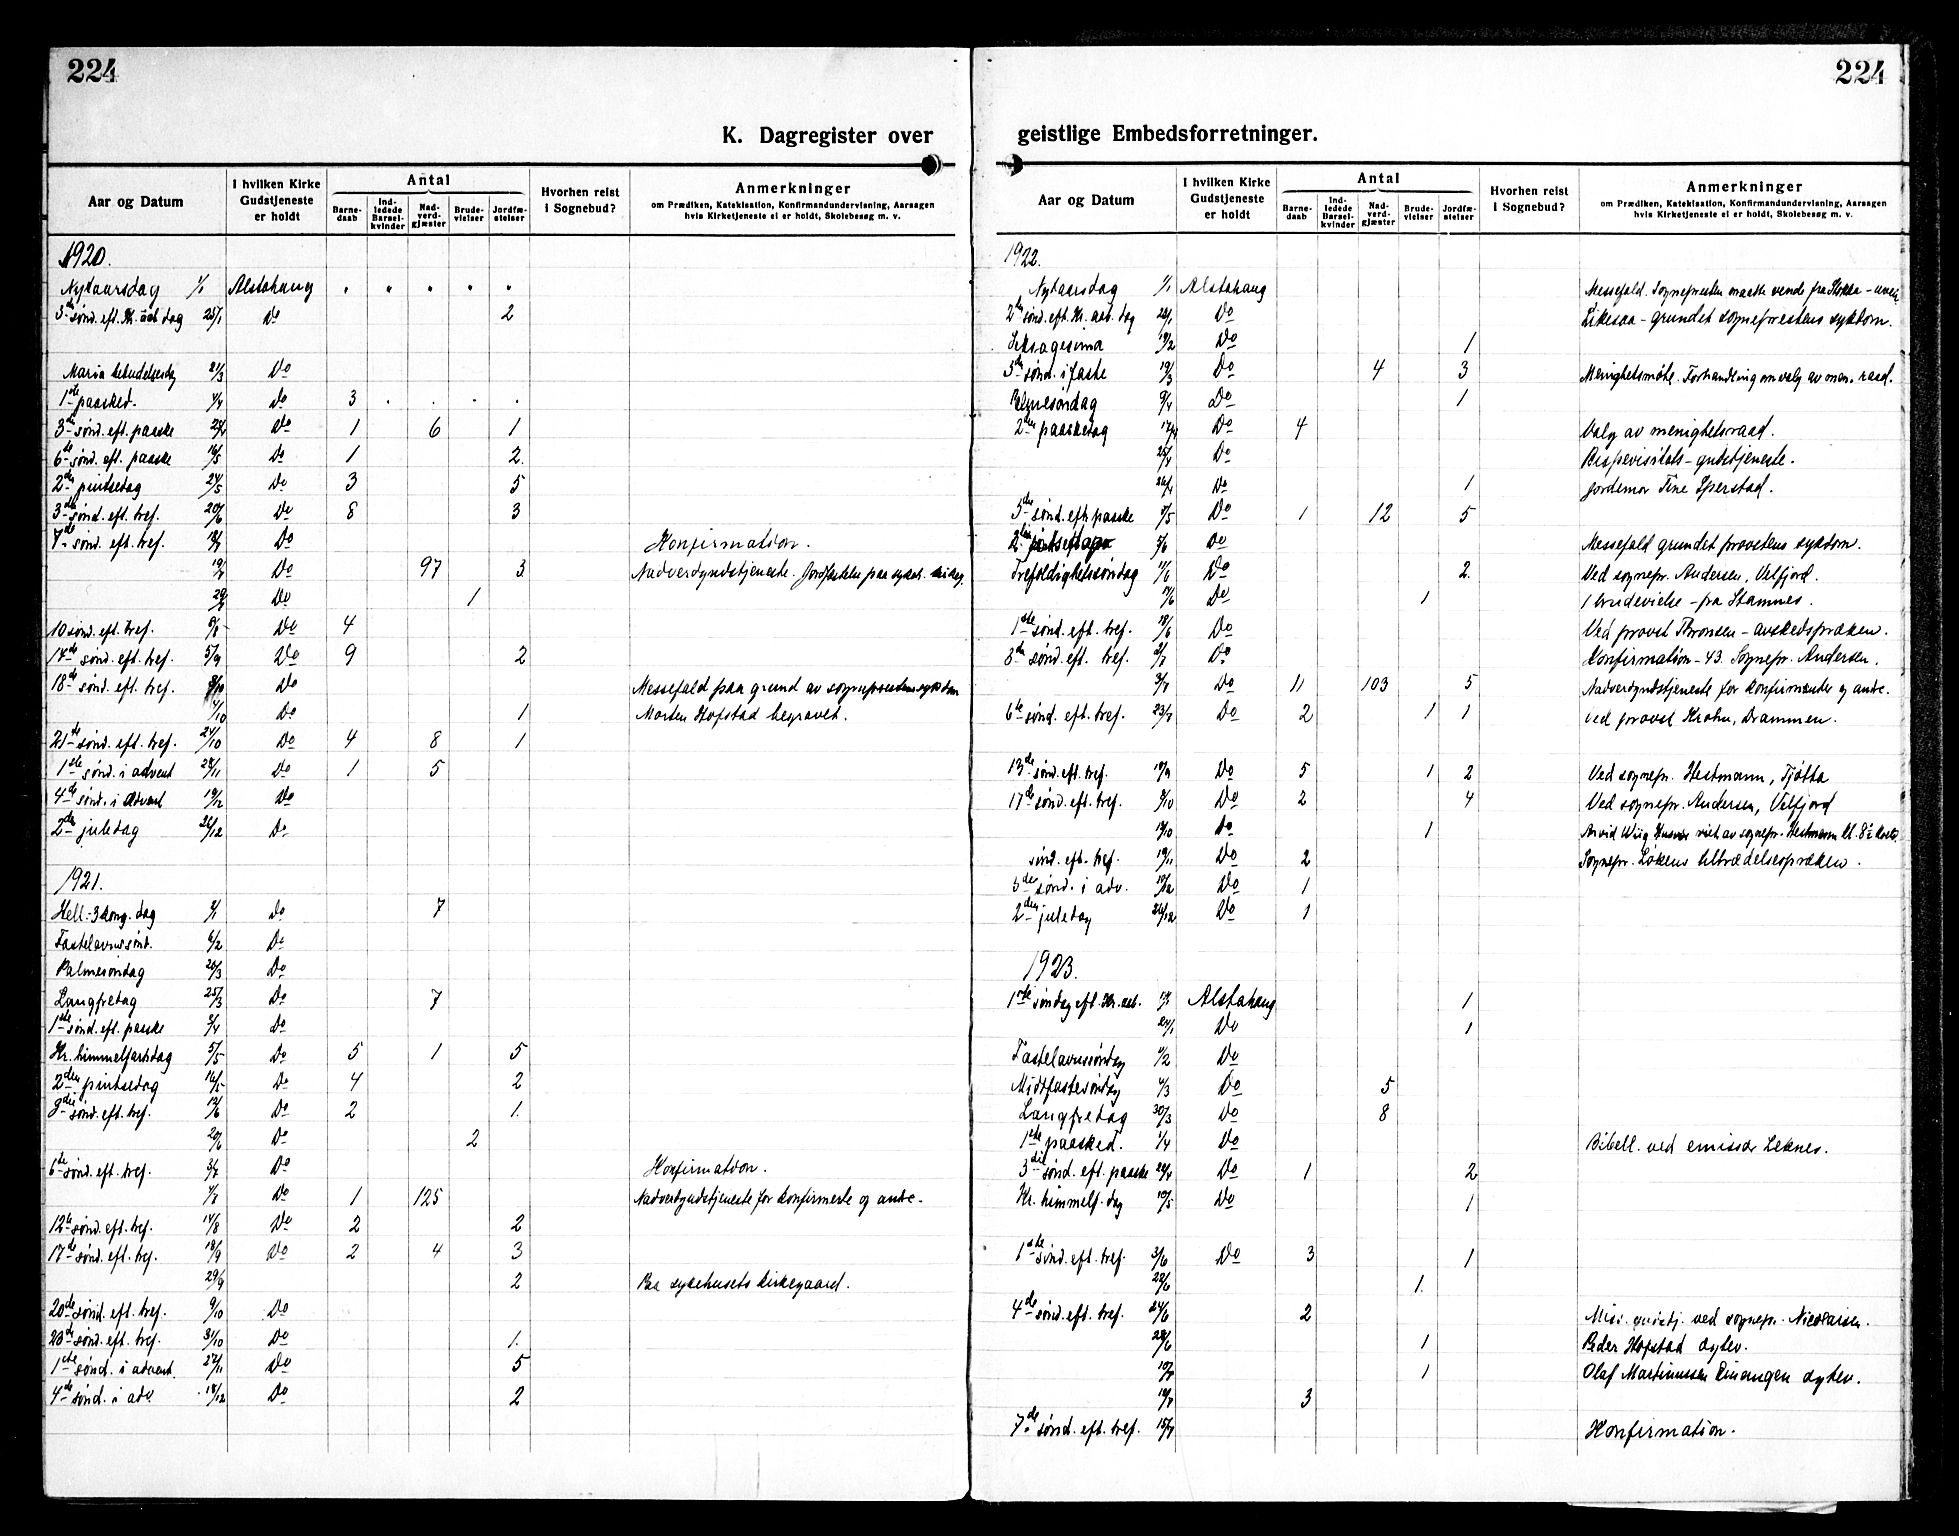 224
224
K. Dagregister over geistlige Embedsforretninger.
Aar og Datum
I hvilken Kirke Gudstjeneste er holdt
Antal
Barnedaab
Indledede Barselkvinder
Nadverdgjæster
Brudevielser
Jordfæstelser
Hvorhen reist i Sognebud?
Anmerkninger
om Prædiken, Katekisation, Konfirmandundervisning, Aarsagen hvis Kirketjeneste ei er holdt, Skolebesøg m. v.
1920.
Nytaarsdag 1/1 Alstahaug " " " " "
3die sønd. eft. Kr. aab. dag 25/1 Do 2
Maria budskabsdag 21/3 Do
1ste paasked. 4/4 Do 3 . . . .
3die sønd. eft. paaske 25/4 Do 1 6 1
6te sønd. eft. paaske 16/5 Do 1 2
2den pintsedag 24/5 Do 3 5
3die sønd. eft. tref. 20/6 Do 8 3
7de sønd. eft. tref. 18/7 Do Konfirmation.
19/7 Do 97 3 Nadverdgudstjeneste. Jordfæstelse paa sykeh. kirkeg.
29/7 Do 1
10 sønd. eft. tref. 8/8 Do 4
14de sønd. eft. tref. 5/9 Do 9 2
18de sønd. eft. tref. 3/10 Do Messefald paa grund av sogneprestens sykdom
4/10 Do 1 Morten Hofstad begravet.
21de sønd. eft. tref. 24/10 Do 4 8 1
1ste sønd. i advent 28/11 Do 1 5
4de sønd. i advent 19/12 Do
2den juledag 26/12 Do
1921.
Hell. 3 kong. dag 2/1 Do 7
Fastelavnssønd. 6/2 Do
Palmesøndag 20/3 Do
Langfredag 25/3 Do 7
1ste sønd. eft. paaske 3/4 Do
Kr. himmelfartsdag 5/5 Do 5 1 5
2den pintsedag 16/5 Do 4 2
3die sønd. eft. tref. 12/6 Do 2 1.
20/6 Do 2
6te sønd. eft. tref. 3/7 Do Konfirmation.
4/7 Do 1 125 Nadverdgudstjeneste for konfirmerte og andre.
12te sønd. eft. tref. 14/8 Do 2 2
17de sønd. eft. tref. 18/9 Do 2 4 3
29/9 2 Paa sykehusets kirkegaard.
20de sønd. eft. tref. 9/10 Do
23de sønd. eft. tref. 31/10 Do 1.
1ste sønd. i advent. 27/11 Do 5
4de sønd. i adv. 18/12 Do 2
Aar og Datum
I hvilken Kirke Gudstjeneste er holdt
Antal
Barnedaab
Indledede Barselkvinder
Nadverdgjæster
Brudevielser
Jordfæstelser
Hvorhen reist i Sognebud?
Anmerkninger
om Prædiken, Katekisation, Konfirmandundervisning, Aarsagen hvis Kirketjeneste ei er holdt, Skolebesøg m. v.
1922.
Nytaarsdag 1/1 Alstahaug Messefald. Sognepresten maatte vende fra
2den sønd. eft. Kr. aab. dag Do Likesaa - grundet sogneprestens sykdom.
Seksagesima 19/2 Do 1
3die sønd. i faste 19/3 Do 4 3 Menighetsmøte. Forhandling om valg av men. raad.
Palmesøndag 9/4 Do 1
2den paaskedag 17/4 Do 4 Valg av menighetsraad.
25/4 Do Bispevisitats-gudstjeneste.
26/4 Do 1 Jordemor Tine Sperstad.
3die sønd. eft. paaske 7/5 Do 1 12 5
2den pintsedag 5/6 Do Messefald grundet provstens sykdom.
Trefoldighetssøndag 11/6 Do 2. Ved sognepr. Andersen, Velfjord.
Do 1 1 brudevielse - fra Stamnes.
1ste sønd. eft. tref. 18/6 Do Ved provst Thronsen - avskedspræken.
3die sønd. eft. tref. 2/7 Do Konfirmation - 43. Sognepr. Andersen.
3/7 Do 11 103 5 Nadverdgudstjeneste for konfirmerte og andre.
6te sønd. eft. tref. 23/7 Do 2 1 1 ved provst Krohn, Drammen.
13de sønd. eft. tref. 10/9 Do 5 1 2 Ved sognepr. Hestmann, Tjøtta
17de sønd. eft. tref. 8/10 Do 2 4 Ved sognepr. Andersen, Velfjord
Do 1 Arvid Wiig viet av sognepr. Hestmann
sønd. eft. tref. 19/11 Do 2 Sognepr. Løkens tiltrædelsespræken.
3die sønd. i adv. Do 1
2den juledag 26/12 Do 1
1923.
1ste søndag eft. Kr. aab. Alstahaug 1
24/1 Do 1
Fastelavnssøndag 11/2 Do
Midtfastesøndag 4/3 Do 5
Langfredag 30/3 Do 8
1ste paasked. 1/4 Do Bibell. ved emissær Leknes.
3die sønd. eft. paaske 22/4 Do 1 2
Kr. himmelf. dag 10/5 Do 1
1ste sønd. eft. tref. 3/6 Do 3 1
22/6 1.
4de sønd. eft. tref. 24/6 2 Miss. gudstj. ved sognepr. Nicolaisen.
28/6 1 Peder Hofstad dytev.
10/7 1 Olaf Martinussen dytev.
3
7de sønd. eft. tref. 15/7 Konfirmation.